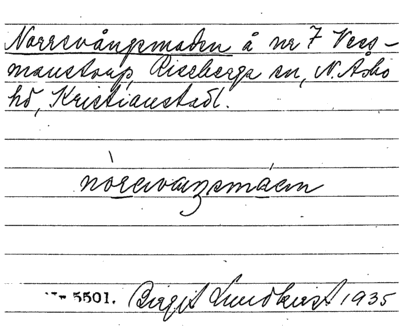 Norrevångsmaden å nr 7 Vess-
manstorp, Riseberga sn, N. Åsbo
hd, Kristianstadl.
nòrevaŋsmáen
5501. Birgit Lundkvist 1935